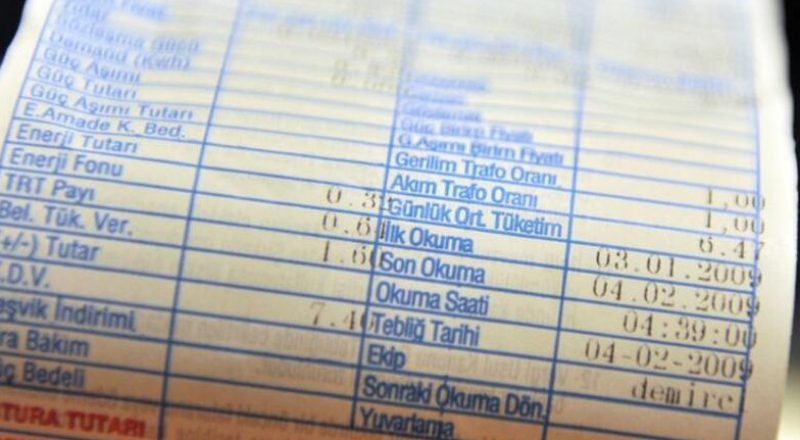 Tutar
Sözleşme Gücü
Demand (Kwh)
Güç Aşımı
Güç Tutarı
Güç Aşımı Tutarı
E.Amade K. Bed.
Enerji Tutarı
Enerji Fonu
TRT Payı
Bel. Tük. Ver.
+/-) Tutar
.D.V.
eşvik İndirimi
ra Bakım
iç Bedeli
TURA TUTARI
0.3
0.6
1.6
7.4
Güç Birim Fiyatı
G.Aşımı Birim Fiyatı
Gerilim Trafo Oranı 1,00
Akım Trafo Oranı 1,00
Günlük Ort. Tüketim 6.47
İlk Okuma 03.01.2009
Son Okuma 04.02.2009
Okuma Saati 04:39:00
Tebliğ Tarihi 04-02-2009
Ekip demire
Sonraki Okuma Dön.
Yuvarlama